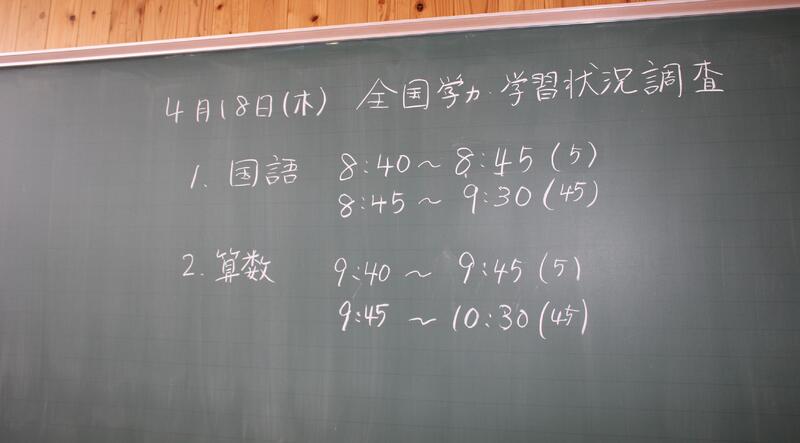 4月18日(木) 全国学力・学習状況調査
1. 国語 8:40〜8:45(5)
8:45〜9:30(45)
2. 算数 9:40〜9:45(5)
9:45〜10:30(45)